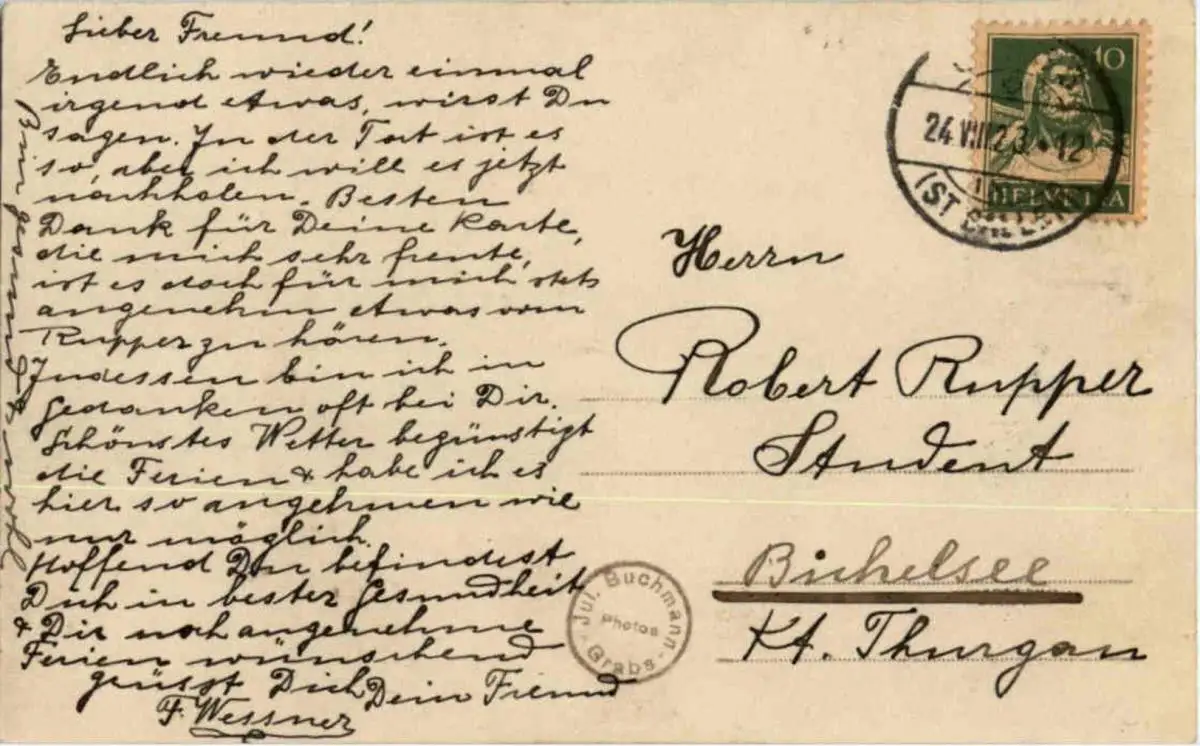 Lieber Freund!
Endlich wieder einmal
irgend etwas, wirst Du
sagen. In der Tat ist es
so, aber ich will es jetzt
nachholen. Besten
Dank für Deine Karte,
die mich sehr freute,
ist es doch für mich stets
angenehm etwas vom
Rupper zu hören.
Indessen bin ich in
Gedanken oft bei Dir.
Schönstes Wetter begünstigt
die Ferien & habe ich es
hier so angenehmen wie
nur möglich.
Hoffend Du befindest
Dich in bester Gesundheit
& Dir noch angenehme
Ferien wünschend
grüsst Dich Dein Freund
F. Wessner
Bin gesund & wohl
10
24 VIII 23 • 12
(ST GALLEN)
HELVETIA
Herrn
Robert Rupper
Student
Bichelsee
Kt. Thurgau
Jul. Buchmann
Photos
- Grabs -